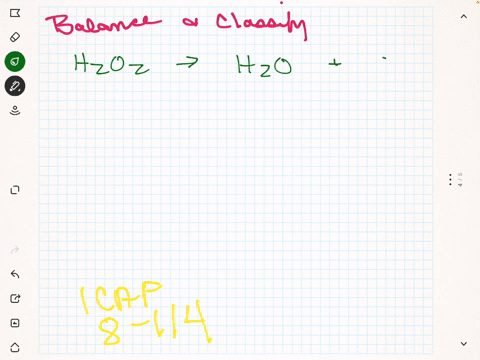 Balance & Classify
H2O2 → H2O +
ICAP
8-114